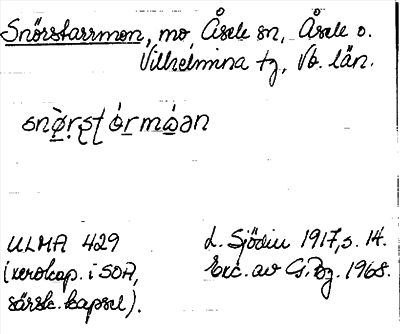 Snörstarrmon, mo, Åsele sn, Åsele o.
Vilhelmina tg, Vb. län.
ULMA 429
(xerokop. i SOA,
särsk. kapsel).
L. Sjödin 1917, s. 14.
Exc. av 1968.